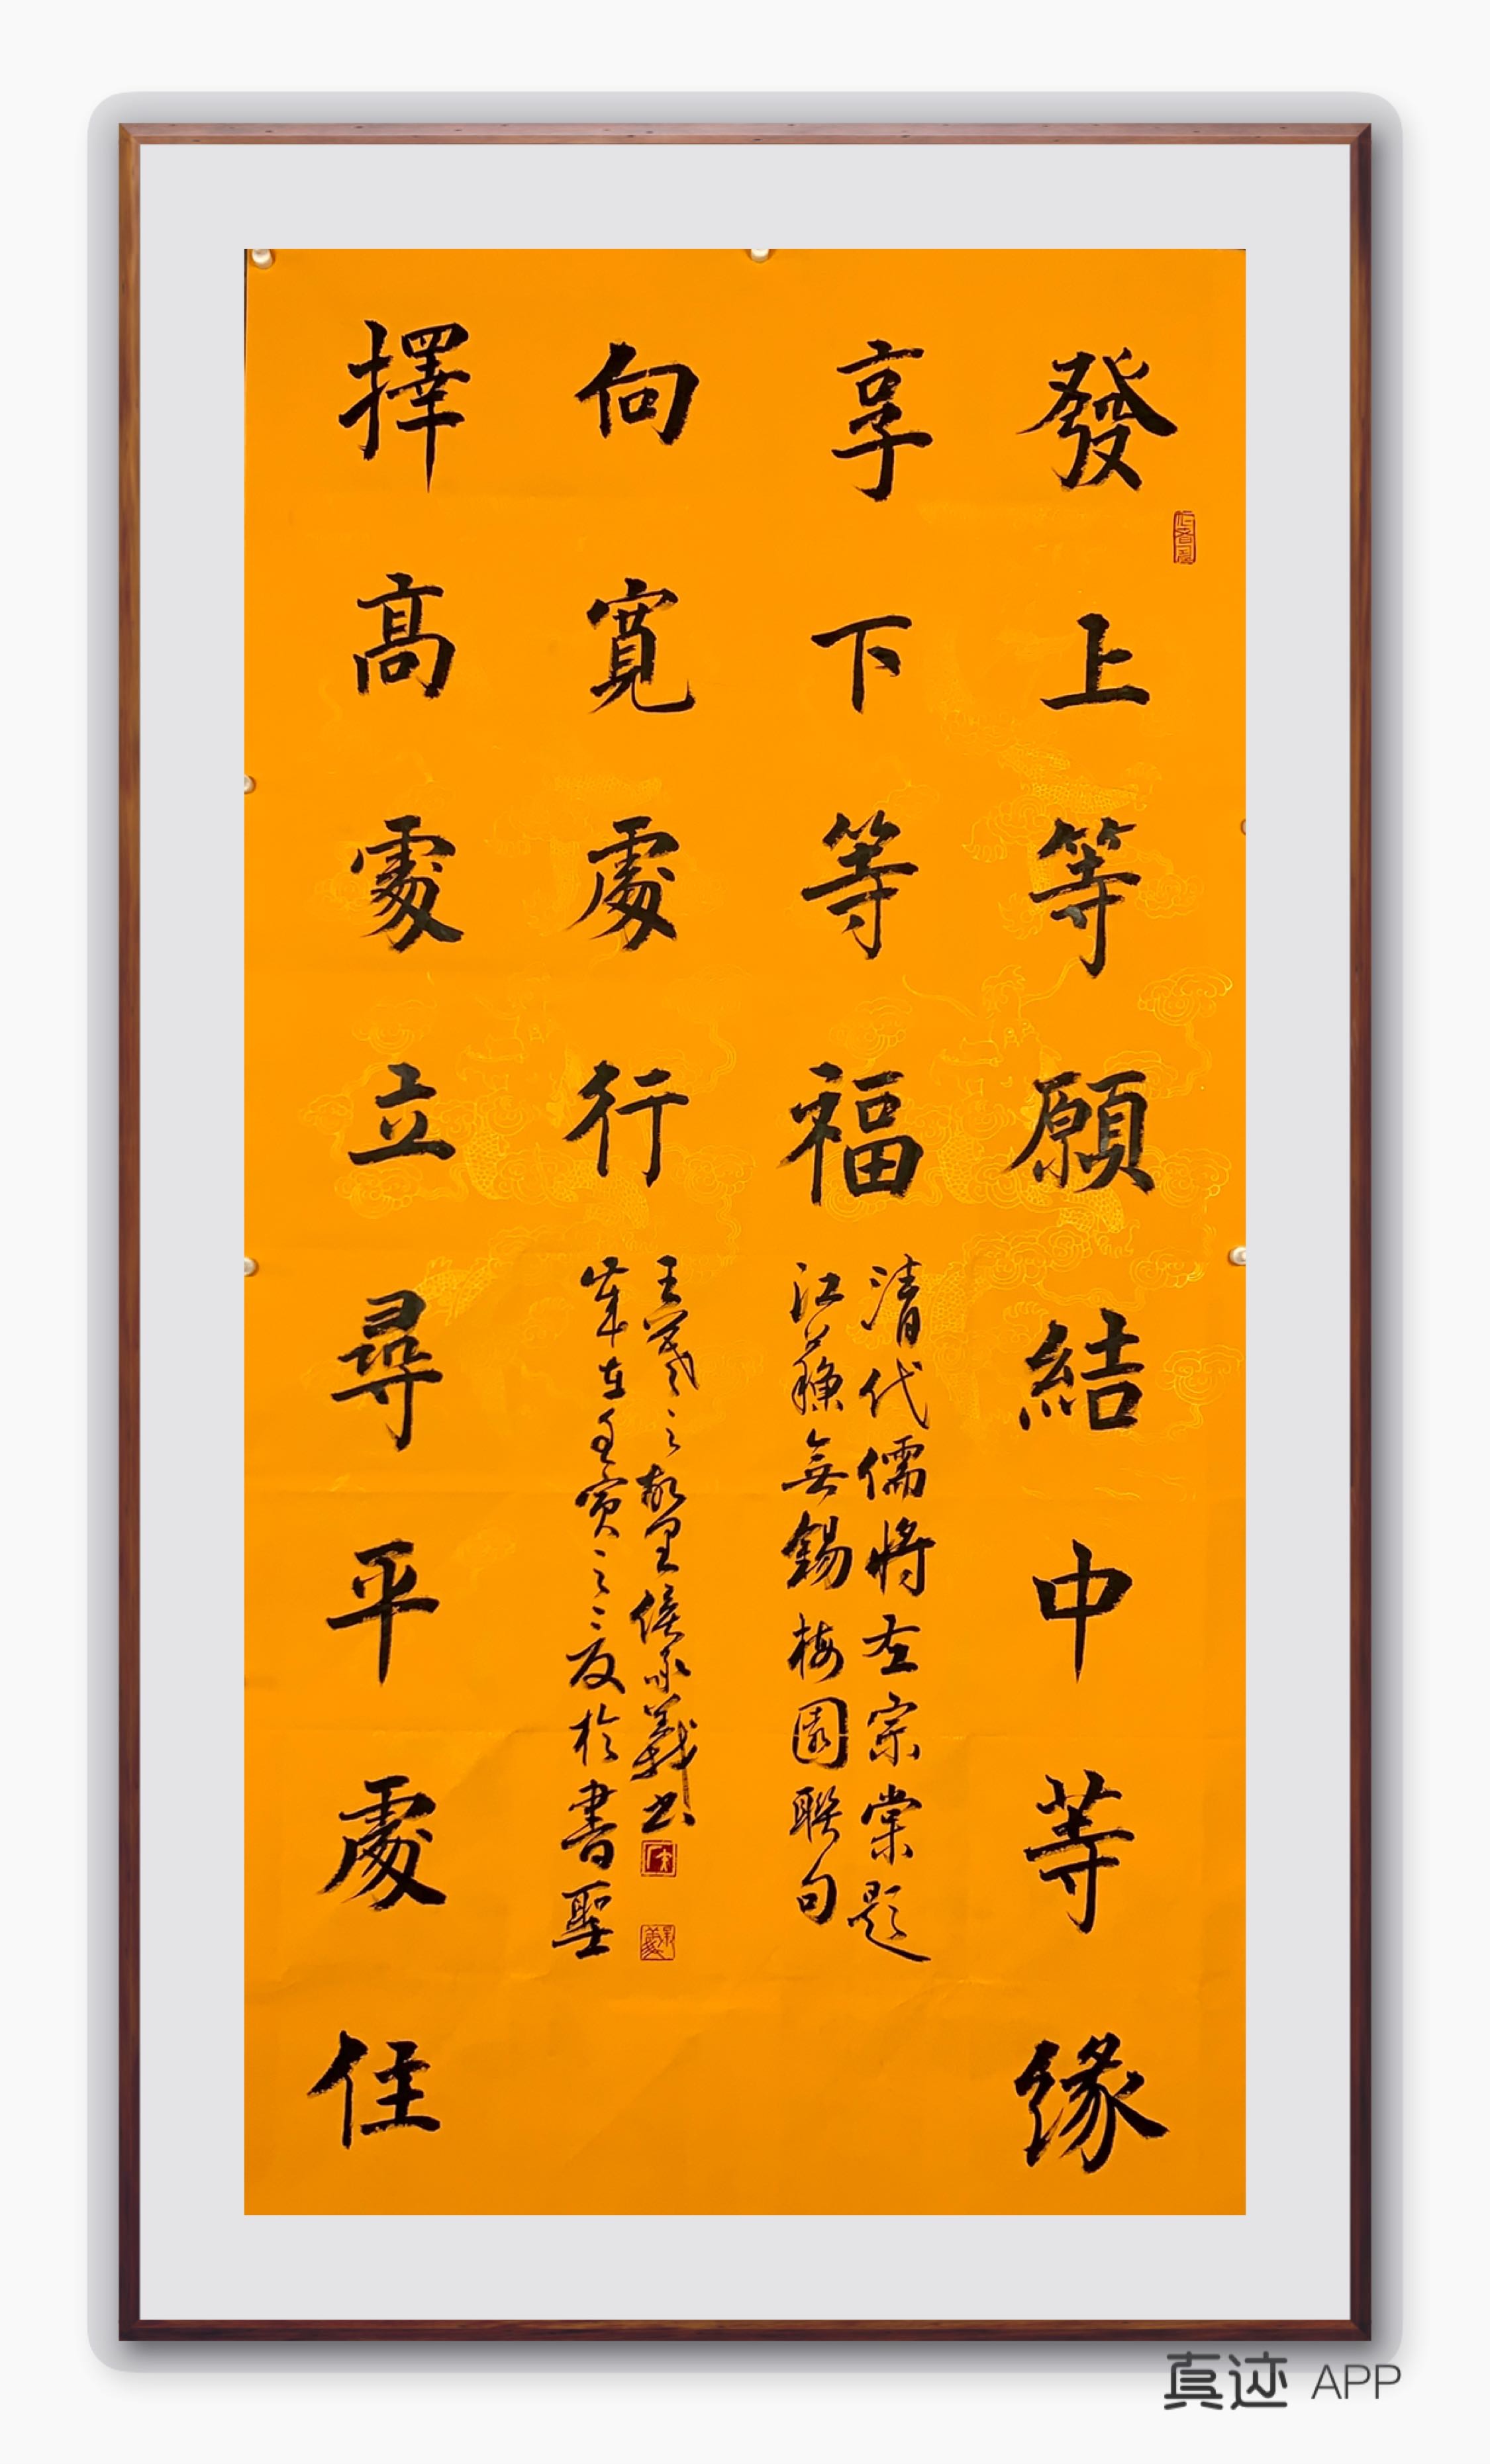 發上等願結中等緣
享下等福
清代儒將左宗棠題
江蘇無錫梅園聯句
擇高處立尋平處住
向寬處行
歲在壬寅之夏於書聖
王羲之故里侯義书
真迹 APP